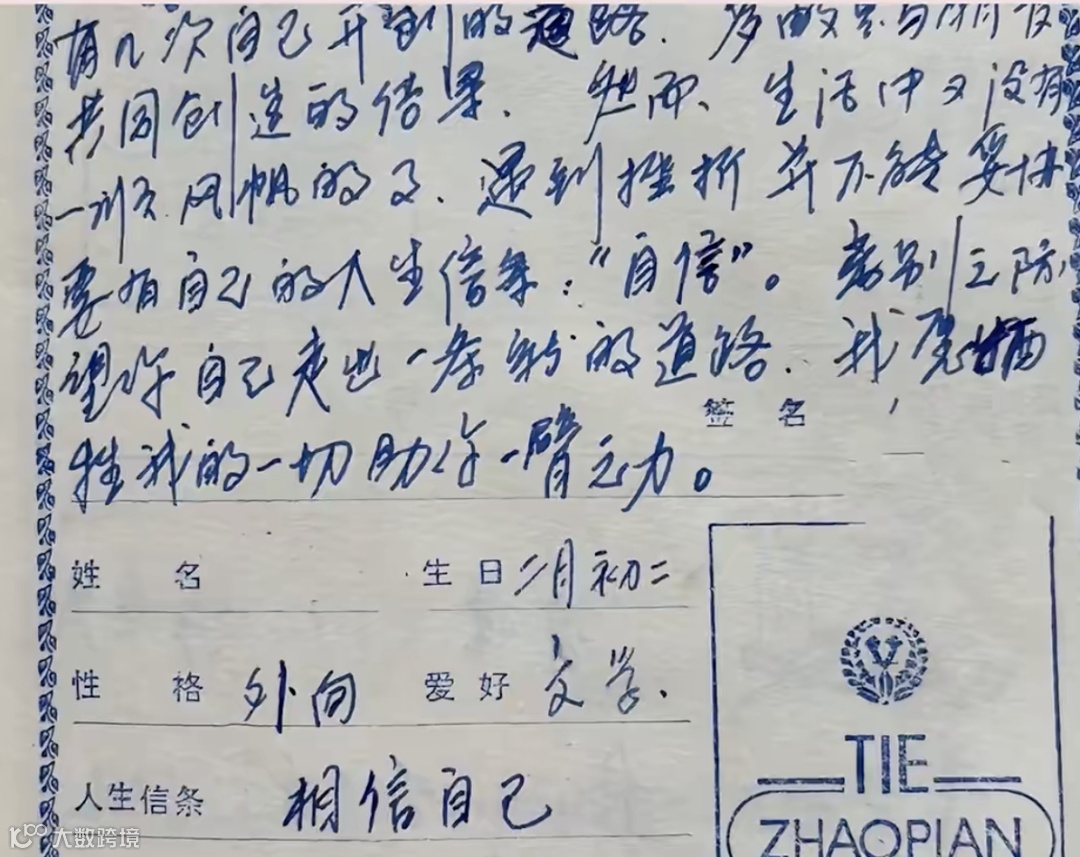 有几次自己开创的道路. 多的是与朋友
共同创造的结果、然而、生活中又没有
一顺风帆的了、遇到挫折并不能妥协
要有自己的人生信条："自信"。离别之际
望你自己走出一条新的道路、我愿牺
签 名
牲我的一切助你一臂之力。
姓 名
生日 二月初二
性 格 外向
爱好 文学.
人生信条 相信自己
TIE
ZHAOPIAN
大数跨境